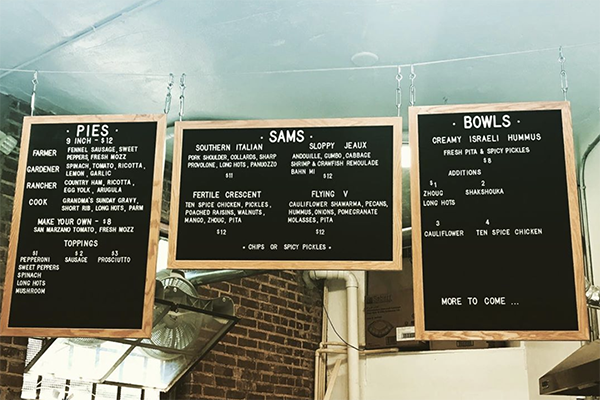 · PIES ·
9 INCH - $12
FARMER FENNEL SAUSAGE, SWEET
PEPPERS, FRESH MOZZ
GARDENER SPINACH, TOMATO, RICOTTA,
LEMON, GARLIC
RANCHER COUNTRY HAM, RICOTTA,
EGG YOLK, ARUGULA
COOK GRANDMA'S SUNDAY GRAVY,
SHORT RIB, LONG HOTS, PARM
MAKE YOUR OWN - $8
SAN MARZANO TOMATO, FRESH MOZZ
TOPPINGS
$1 $2 $3
PEPPERONI SAUSAGE PROSCIUTTO
SWEET PEPPERS
SPINACH
LONG HOTS
MUSHROOM
· SAMS ·
SOUTHERN ITALIAN
PORK SHOULDER, COLLARDS, SHARP
PROVOLONE, LONG HOTS, PANUOZZO
$11
SLOPPY JEAUX
ANDOUILLE, GUMBO, CABBAGE
SHRIMP & CRAWFISH REMOULADE
BAHN MI
$12
FERTILE CRESCENT
TEN SPICE CHICKEN, PICKLES,
POACHED RAISINS, WALNUTS,
MANGO, ZHOUG, PITA
$12
FLYING V
CAULIFLOWER SHAWARMA, PECANS,
HUMMUS, ONIONS, POMEGRANATE
MOLASSES, PITA
$12
· CHIPS OR SPICY PICKLES ·
· BOWLS ·
CREAMY ISRAELI HUMMUS
FRESH PITA & SPICY PICKLES
$8
ADDITIONS
$1 2
ZHOUG SHAKSHOUKA
LONG HOTS
3 4
CAULIFLOWER TEN SPICE CHICKEN
MORE TO COME ...